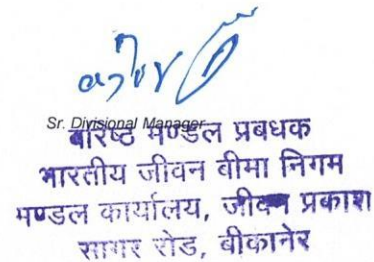 Sr. Divisional Manager
वरिष्ठ मण्डल प्रबंधक
भारतीय जीवन बीमा निगम
मण्डल कार्यालय, जीवन प्रकाश
सागर रोड, बीकानेर